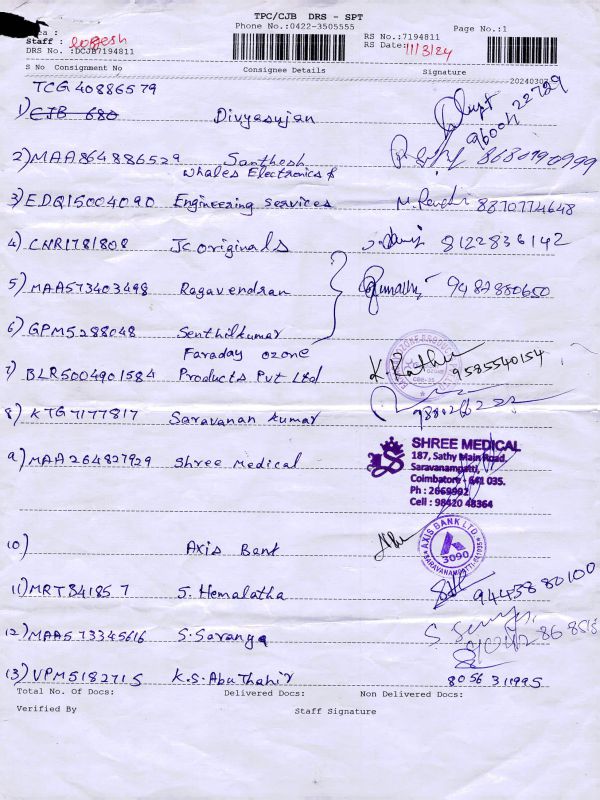 TPC/CJB DRS - SPT
Phone No.:0422-3505555
Page No.:1
Staff : Logesh
RS No.:7194811
DRS No. :DCJB7194811
RS Date: 11/3/24
S No Consignment No Consignee Details Signature
TCG 40886579
1) CJB 680 Divyasujan 96004 22729
2) MAA864886529 Santhesh 8680790999
Whales Electronics &
3) EDQ15004090 Engineering Services M. Ravchi 8870774648
4) CNR1781808 JC originals 8122836142
5) MAA573403498 Ragavendran 9487880650
6) GPM5288048 Senthilkumar
Faraday ozone
7) BLR5004901584 Products Pvt Ltd K. Rathi 9585540154
8) KTG7177817 Saravanan kumar
9) MAA264827929 Shree Medical
SHREE MEDICAL
187, Sathy Main Road,
Saravanampatti,
Coimbatore - 641 035.
Ph : 2669992
Cell : 98420 48364
10) Axis Bank
AXIS BANK LTD
3090
SARAVANAMPATTI-641035
11) MRT84185 7 S. Hemalatha 94438 80100
12) MAA573345616 S. Saranga
13) VPM5182715 K.S. Abu Thahir 8056 311995
Total No. Of Docs: Delivered Docs: Non Delivered Docs:
Verified By Staff Signature